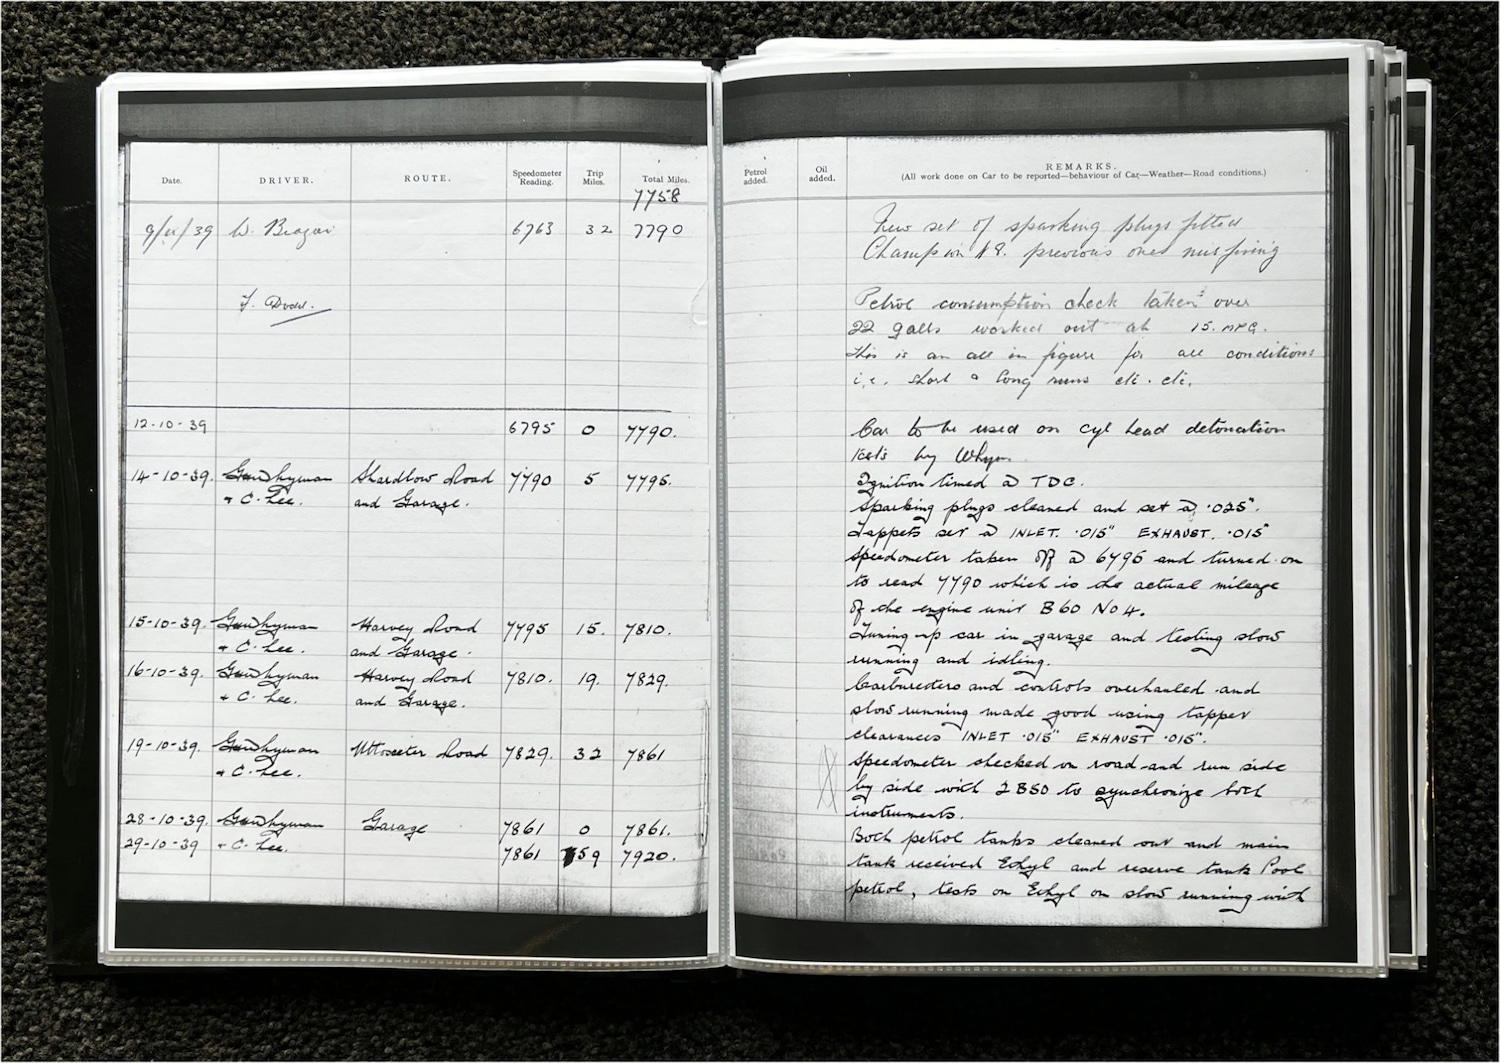 Date. DRIVER. ROUTE. Speedometer Reading. Trip Miles. Total Miles.
7758
9/ /39 W. 6763 32 7790
12-10-39 6795 0 7790.
14-10-39. Shardlow Road 7790 5 7795.
+ C. Lee. and Garage.
15-10-39. Harvey Road 7795 15. 7810.
+ C. Lee. and Garage.
16-10-39. Harvey Road 7810. 19. 7829.
+ C. Lee. and Garage.
19-10-39. Uttoxeter Road 7829. 32 7861
+ C. Lee.
28-10-39. Garage 7861 0 7861.
29-10-39 + C. Lee. 7861 59 7920.
Petrol added. Oil added. REMARKS.
(All work done on Car to be reported—behaviour of Car—Weather—Road conditions.)
New set of sparking plugs fitted
Champion previous ones misfiring
Petrol consumption check taken over
22 galls worked out at 15. MPG.
This is an all in figure for all conditions
i.e. short & long runs etc. etc.
Car to be used on cyl head detonation
tests by
Ignition timed @ TDC.
Sparking plugs cleaned and set @ .025".
Tappets set @ INLET. .015" EXHAUST. .015"
Speedometer taken off @ 6795 and turned on
to read 7790 which is the actual mileage
of the engine unit B60 No 4.
Tuning up car in garage and testing slow
running and idling.
Carburetters and controls overhauled and
slow running made good using tappet
clearances INLET .015" EXHAUST .015".
Speedometer checked on road and run side
by side with 2B50 to synchronize both
instruments.
Both petrol tanks cleaned out and main
tank received Ethyl and reserve tank Pool
petrol, tests on Ethyl on slow running with